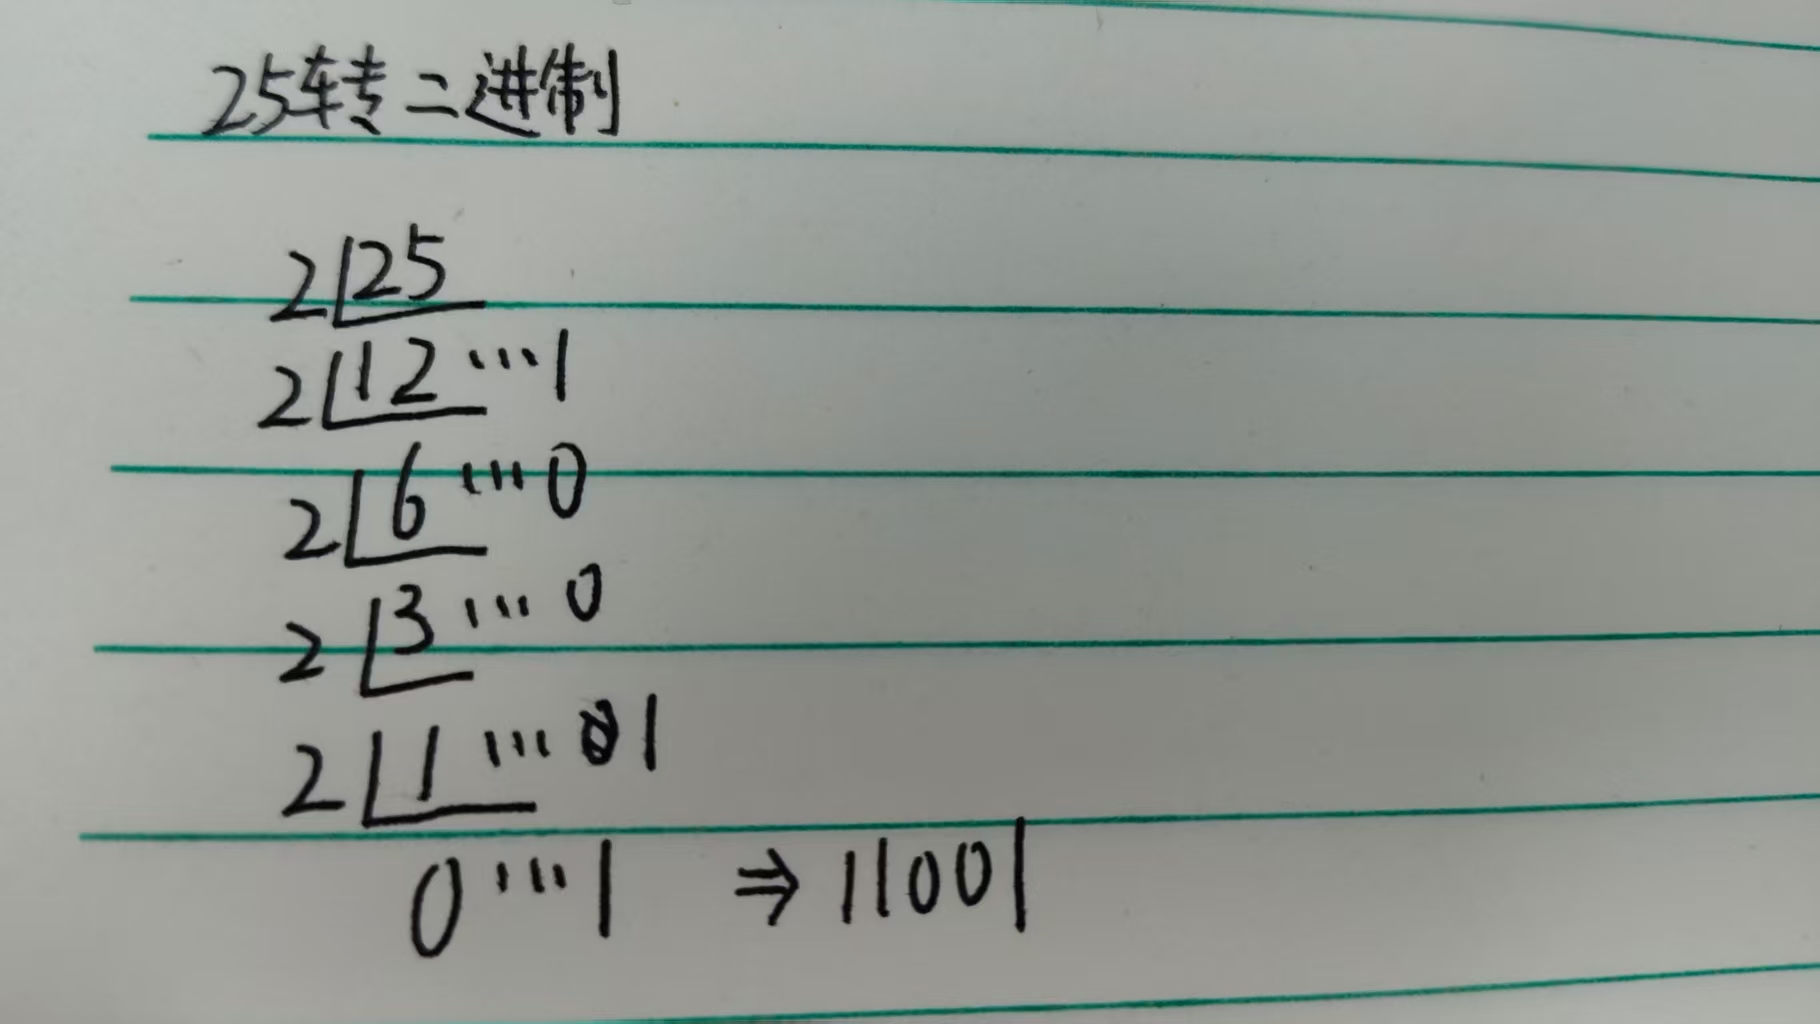 25转二进制
2 25
2 12 ... 1
2 6 ... 0
2 3 ... 0
2 1 ... 1
0 ... 1 ⇒ 11001